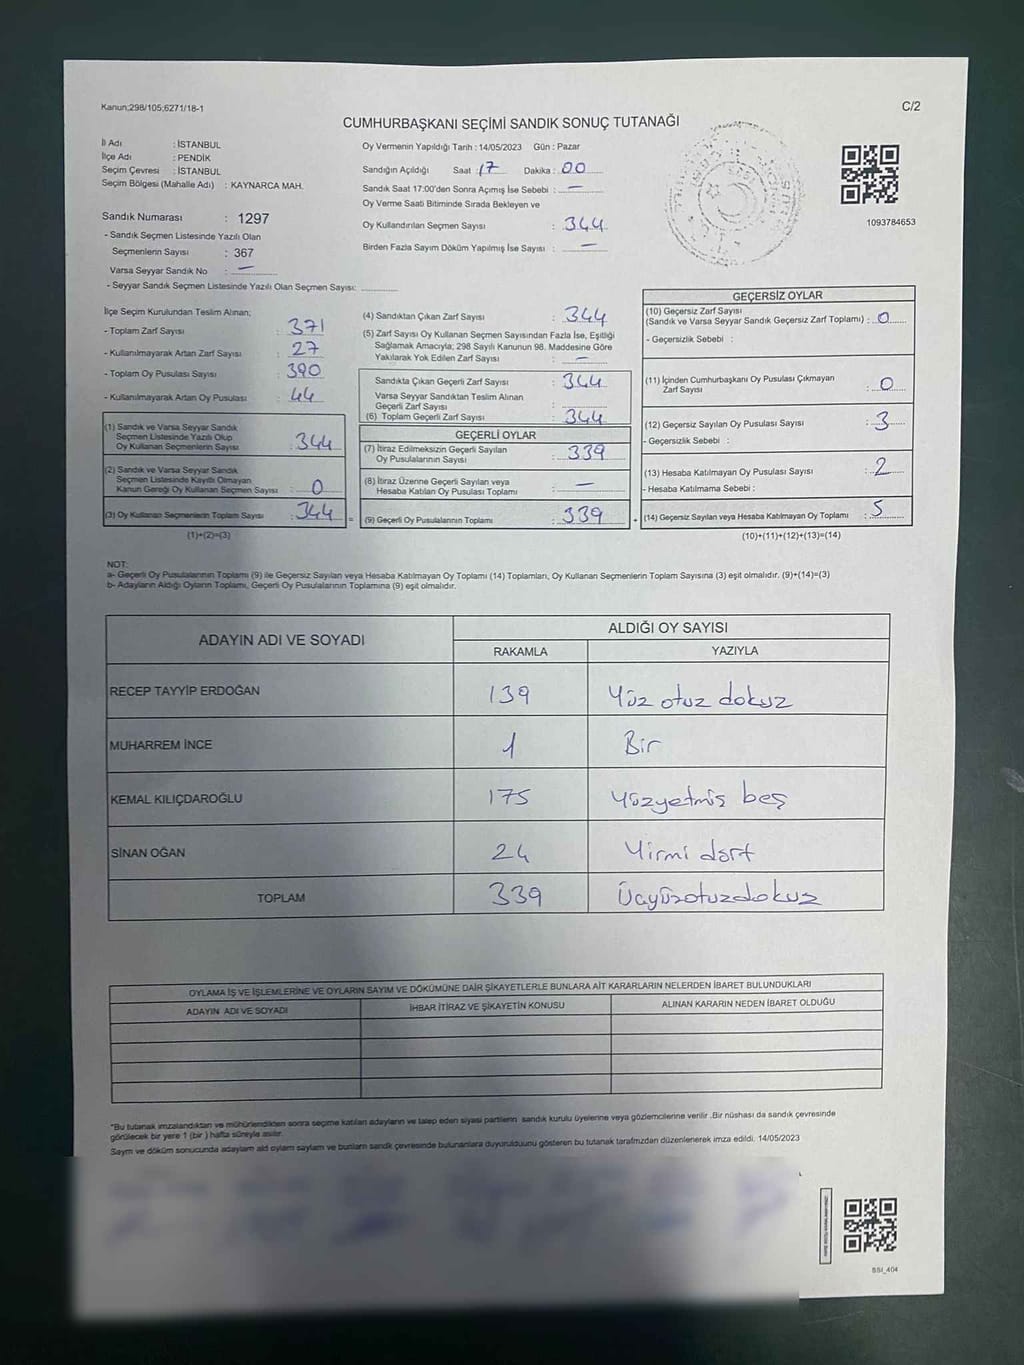 Kanun;298/105;6271/18-1
C/2
CUMHURBAŞKANI SEÇİMİ SANDIK SONUÇ TUTANAĞI
İl Adı : İSTANBUL
İlçe Adı : PENDİK
Seçim Çevresi : İSTANBUL
Seçim Bölgesi (Mahalle Adı) : KAYNARCA MAH.
Sandık Numarası : 1297
- Sandık Seçmen Listesinde Yazılı Olan
Seçmenlerin Sayısı : 367
Varsa Seyyar Sandık No : —
- Seyyar Sandık Seçmen Listesinde Yazılı Olan Seçmen Sayısı:
Oy Vermenin Yapıldığı Tarih : 14/05/2023 Gün : Pazar
Sandığın Açıldığı Saat 17 Dakika : 00
Sandık Saat 17:00'den Sonra Açımış İse Sebebi : —
Oy Verme Saati Bitiminde Sırada Bekleyen ve
Oy Kullandırılan Seçmen Sayısı : 344
Birden Fazla Sayım Döküm Yapılmış İse Sayısı : —
1093784653
İlçe Seçim Kurulundan Teslim Alınan;
- Toplam Zarf Sayısı : 371
- Kullanılmayarak Artan Zarf Sayısı : 27
- Toplam Oy Pusulası Sayısı : 390
- Kullanılmayarak Artan Oy Pusulası : 44
(1) Sandık ve Varsa Seyyar Sandık
Seçmen Listesinde Yazılı Olup
Oy Kullanan Seçmenlerin Sayısı : 344
(2) Sandık ve Varsa Seyyar Sandık
Seçmen Listesinde Kayıtlı Olmayan
Kanun Gereği Oy Kullanan Seçmen Sayısı : 0
(3) Oy Kullanan Seçmenlerin Toplam Sayısı : 344
(1)+(2)=(3)
(4) Sandıktan Çıkan Zarf Sayısı : 344
(5) Zarf Sayısı Oy Kullanan Seçmen Sayısından Fazla İse, Eşitliği
Sağlamak Amacıyla; 298 Sayılı Kanunun 98. Maddesine Göre
Yakılarak Yok Edilen Zarf Sayısı : —
Sandıkta Çıkan Geçerli Zarf Sayısı : 344
Varsa Seyyar Sandıktan Teslim Alınan
Geçerli Zarf Sayısı :
(6) Toplam Geçerli Zarf Sayısı : 344
GEÇERLİ OYLAR
(7) İtiraz Edilmeksizin Geçerli Sayılan
Oy Pusulalarının Sayısı : 339
(8) İtiraz Üzerine Geçerli Sayılan veya
Hesaba Katılan Oy Pusulası Toplamı : —
= (9) Geçerli Oy Pusulalarının Toplamı : 339
GEÇERSİZ OYLAR
(10) Geçersiz Zarf Sayısı
(Sandık ve Varsa Seyyar Sandık Geçersiz Zarf Toplamı) : 0
- Geçersizlik Sebebi :
(11) İçinden Cumhurbaşkanı Oy Pusulası Çıkmayan
Zarf Sayısı : 0
(12) Geçersiz Sayılan Oy Pusulası Sayısı : 3
- Geçersizlik Sebebi :
(13) Hesaba Katılmayan Oy Pusulası Sayısı : 2
- Hesaba Katılmama Sebebi :
+ (14) Geçersiz Sayılan veya Hesaba Katılmayan Oy Toplamı : 5
(10)+(11)+(12)+(13)=(14)
NOT:
a- Geçerli Oy Pusulalarının Toplamı (9) ile Geçersiz Sayılan veya Hesaba Katılmayan Oy Toplamı (14) Toplamları, Oy Kullanan Seçmenlerin Toplam Sayısına (3) eşit olmalıdır. (9)+(14)=(3)
b- Adayların Aldığı Oyların Toplamı, Geçerli Oy Pusulalarının Toplamına (9) eşit olmalıdır.
ADAYIN ADI VE SOYADI
ALDIĞI OY SAYISI
RAKAMLA YAZIYLA
RECEP TAYYİP ERDOĞAN 139 Yüz otuz dokuz
MUHARREM İNCE 1 Bir
KEMAL KILIÇDAROĞLU 175 Yüzyetmiş beş
SİNAN OĞAN 24 Yirmi dört
TOPLAM 339 Üçyüzotuzdokuz
OYLAMA İŞ VE İŞLEMLERİNE VE OYLARIN SAYIM VE DÖKÜMÜNE DAİR ŞİKAYETLERLE BUNLARA AİT KARARLARIN NELERDEN İBARET BULUNDUKLARI
ADAYIN ADI VE SOYADI İHBAR İTİRAZ VE ŞİKAYETİN KONUSU ALINAN KARARIN NEDEN İBARET OLDUĞU
"Bu tutanak imzalandıktan ve mühürlendikten sonra seçime katılan adayların ve talep eden siyasi partilerin sandık kurulu üyelerine veya gözlemcilerine verilir .Bir nüshası da sandık çevresinde
görülecek bir yere 1 (bir ) hafta süreyle asılır.
Sayım ve döküm sonucunda adayların ald oylam sayılam ve bunların sandk çevresinde bulunanlara duyurulduunu gösteren bu tutanak tarafmzdan düzenlenerek imza edildi. 14/05/2023
SSI_404